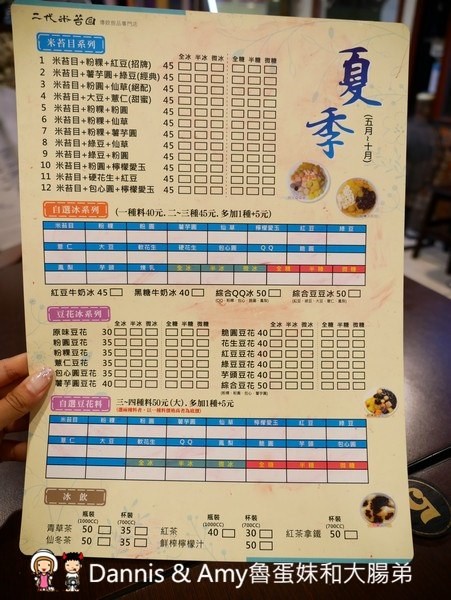 二代米苔目 傳飲甜品專門店
夏季
(五月~十月)
米苔目系列
全冰 半冰 微冰 全糖 半糖 微糖
1 米苔目+粉粿+紅豆(招牌) 45
2 米苔目+薯芋圓+綠豆(經典) 45
3 米苔目+粉圓+仙草(絕配) 45
4 米苔目+大豆+薏仁(甜蜜) 45
5 米苔目+粉粿+粉圓 45
6 米苔目+粉粿+仙草 45
7 米苔目+粉粿+薯芋圓 45
8 米苔目+綠豆+仙草 45
9 米苔目+綠豆+粉圓 45
10 米苔目+粉粿+檸檬愛玉 45
11 米苔目+硬花生+紅豆 45
12 米苔目+包心圓+檸檬愛玉 45
自選冰系列 (一種料40元, 二~三種45元, 多加1種+5元)
米苔目 粉粿 粉圓 薯芋圓 仙草 檸檬愛玉 紅豆 綠豆
薏仁 大豆 軟花生 硬花生 包心圓 QQ 脆圓
鳳梨 芋頭 煉乳 全冰 半冰 微冰 全糖 半糖 微糖
紅豆牛奶冰 45 黑糖牛奶冰 40 綜合QQ冰 50 綜合豆豆冰 50
豆花冰系列
全冰 半冰 微冰 全糖 半糖 微糖 全冰 半冰 微冰 全糖 半糖 微糖
原味豆花 30 脆圓豆花 40
粉圓豆花 35 花生豆花 40
粉粿豆花 35 紅豆豆花 40
薏仁豆花 35 綠豆豆花 40
包心圓豆花 35 芋頭豆花 40
薯芋圓豆花 40 綜合豆花 50
自選豆花料 三~四種料50元(大), 多加1種+5元
米苔目 粉粿 粉圓 薯芋圓 仙草 檸檬愛玉 紅豆 綠豆
薏仁 大豆 軟花生 QQ 鳳梨 脆圓 芋頭 包心圓
全冰 半冰 微冰 全糖 半糖 微糖
冰飲
瓶裝 (1000CC) 杯裝 (700CC) 瓶裝 (1000CC) 杯裝 (700CC) 杯裝 (700CC)
青草茶 50 35 紅茶 40 30 紅茶拿鐵 50
仙冬茶 50 35 鮮榨檸檬汁 50
Dannis & Amy魯蛋妹和大腸弟